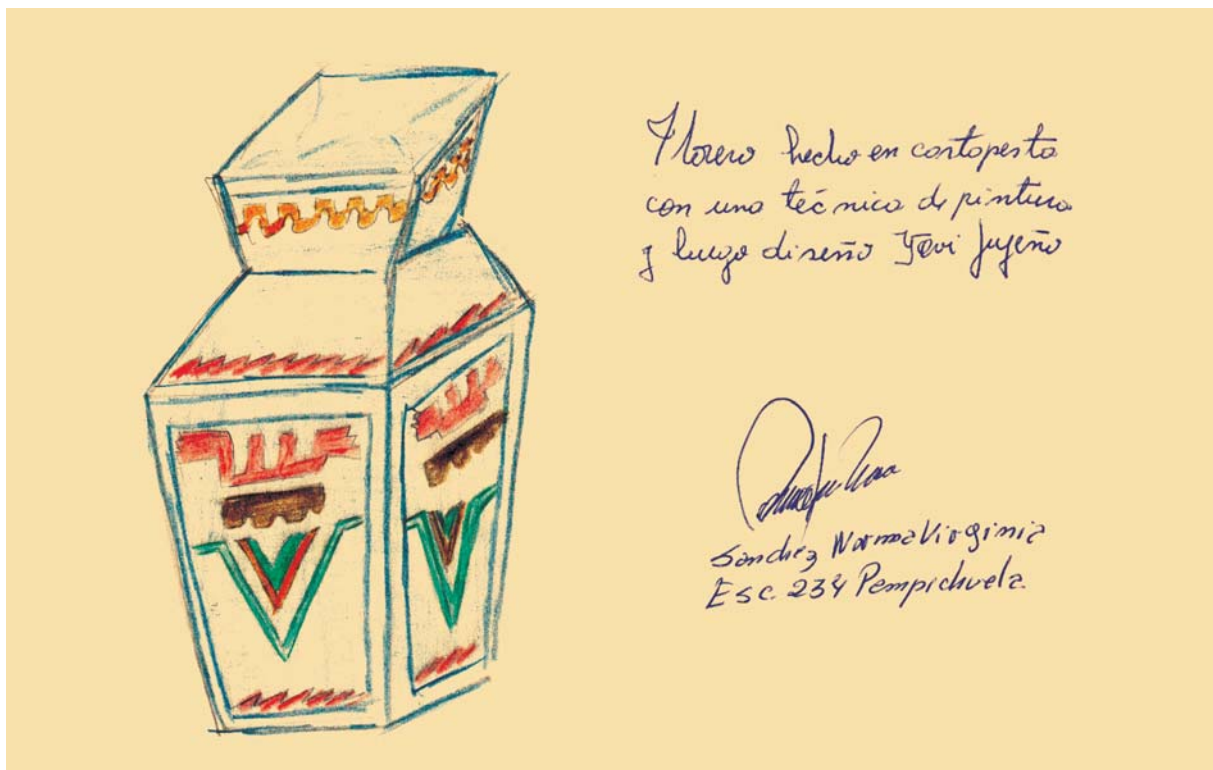 Florero hecho en cartapesta
con una técnica de pintura
y luego diseño Yavi Jujeño
Sanchez Norma Virginia
Esc. 234 Pampichuela.